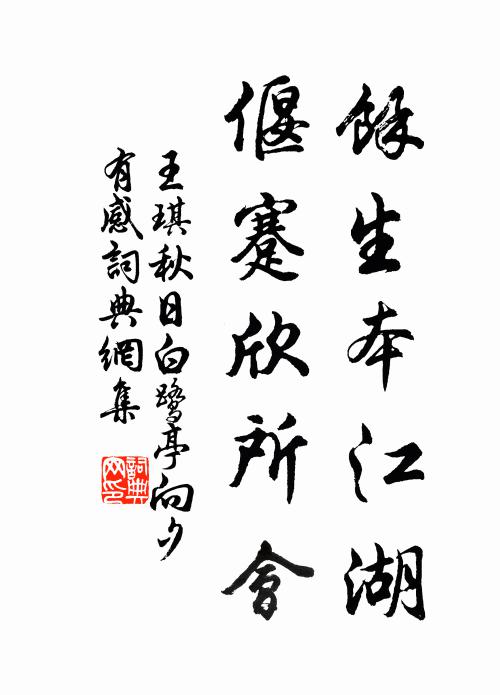 餘生本江湖
偃蹇欣所會
王琪秋日白鷺亭向夕
有感詞典網集
詞典
网印